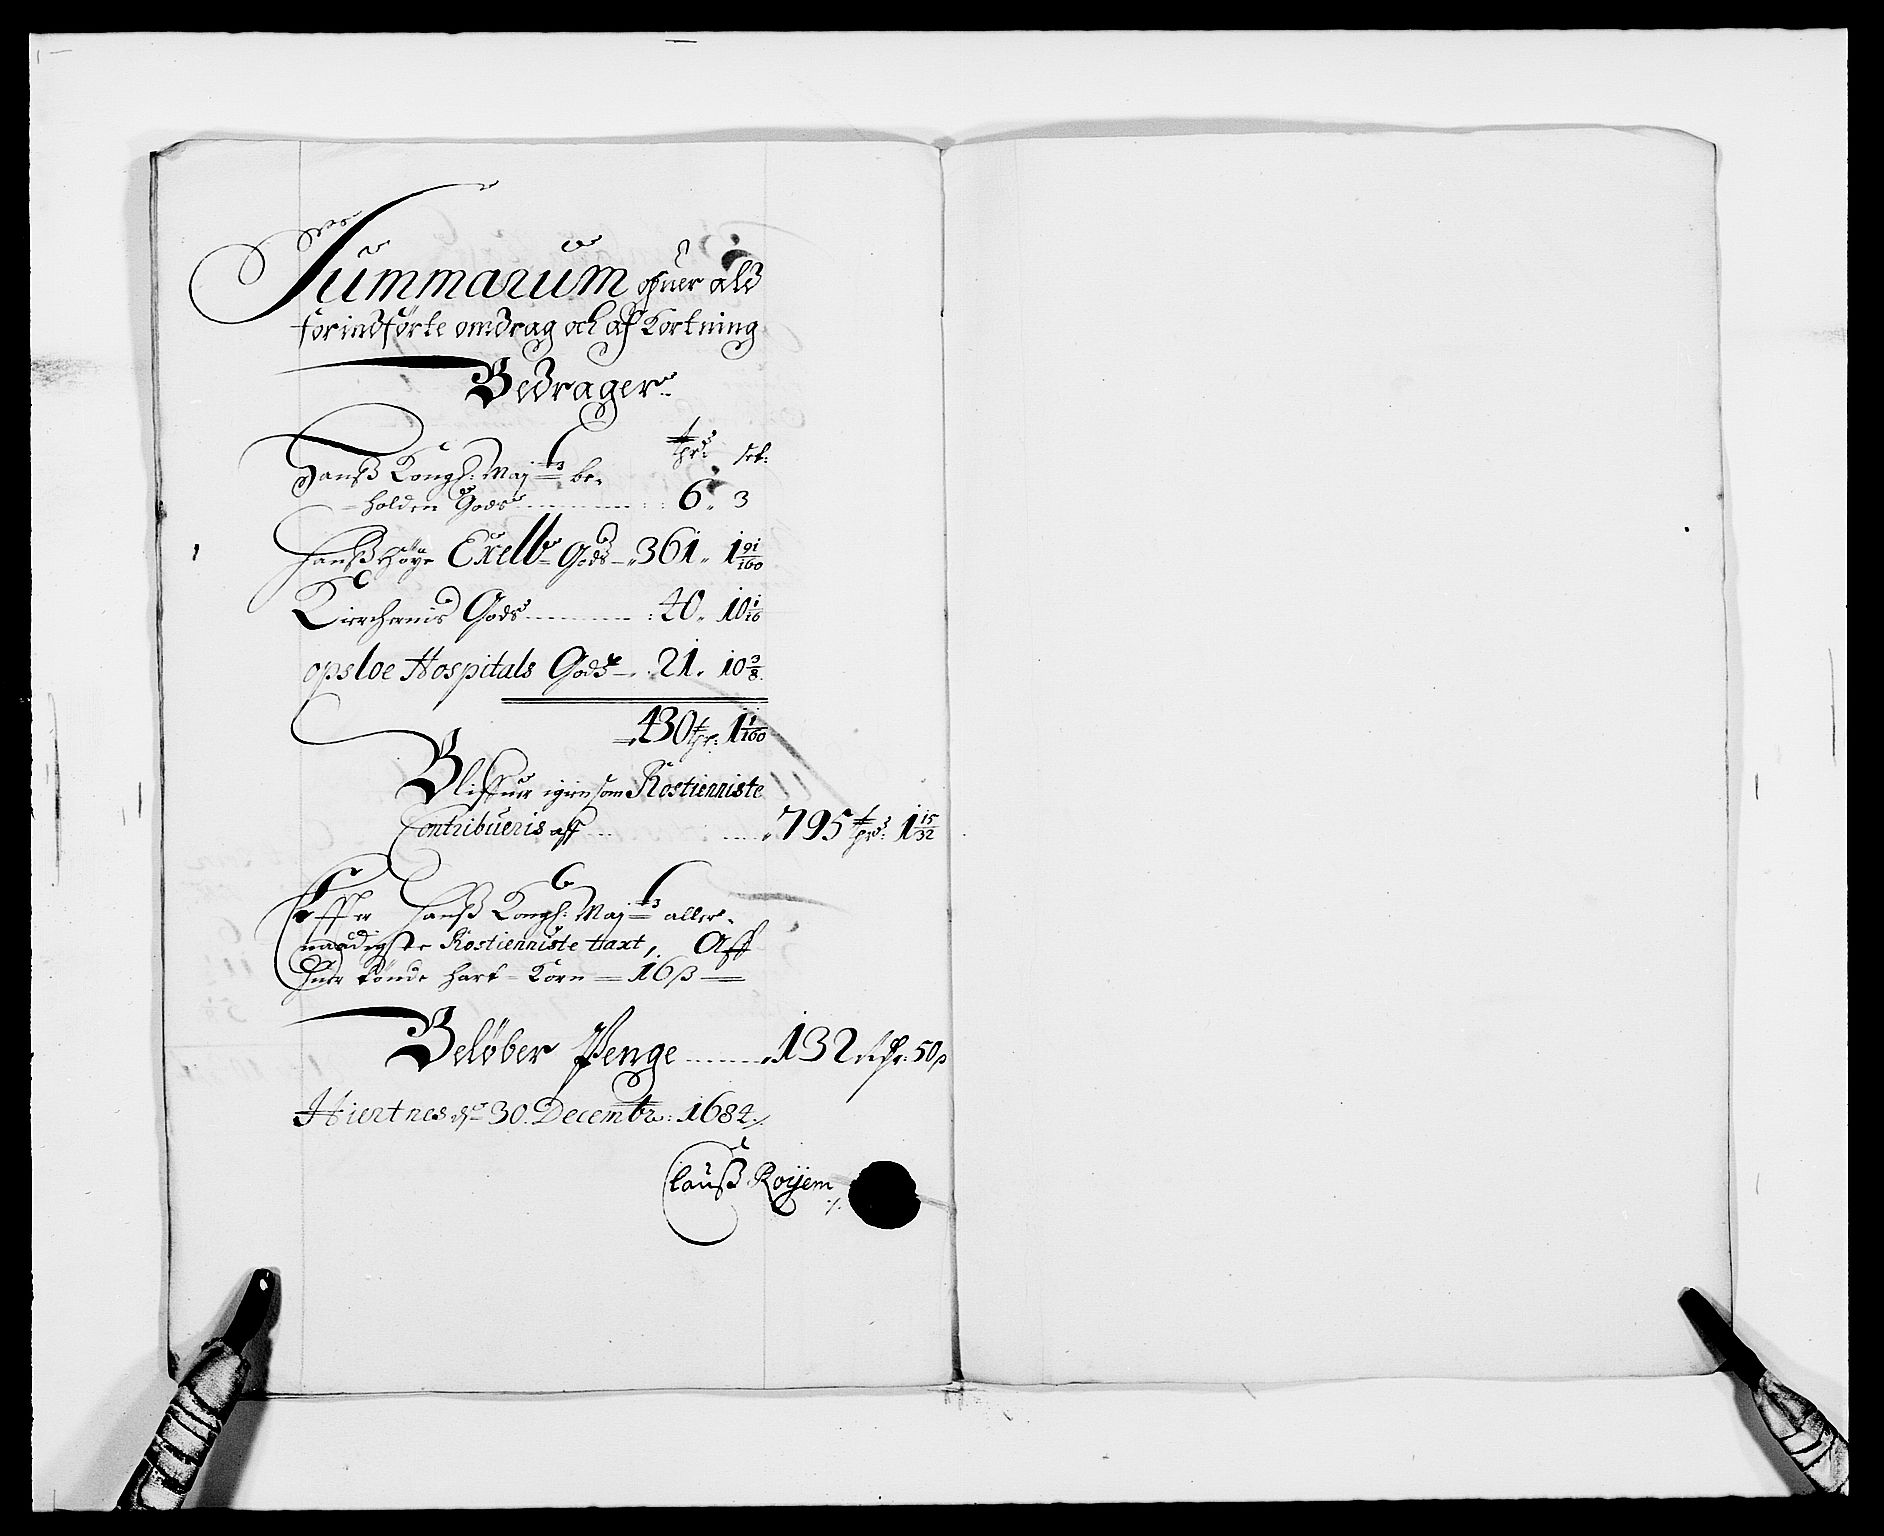 Summarum ofuer ald
forindførte omdrag och af Kortning
Bedrager
tprs: set:
Hanß Kongl: Maj:ts be-
holden Gods 6 3
Hanß Høye Excell: Gods 361 1 91/160
Kierchernis Gods 40 10 1/16
opsloe Hospitals Gods 21 10 3/8
430 tpr: 1 1/160
Bliffuer igien som Rostienniste
Contribueris aff 795 tprs: 1 15/32
Effter Hanß Kongl: Maj:ts aller-
naadigste Rostienniste taxt, Aff
huer tønde hart-Korn 16 ß
Beløber Penge 132 rdr: 50 ß
Hiertnes dn 30 Decembr: 1684
Clauß Royem